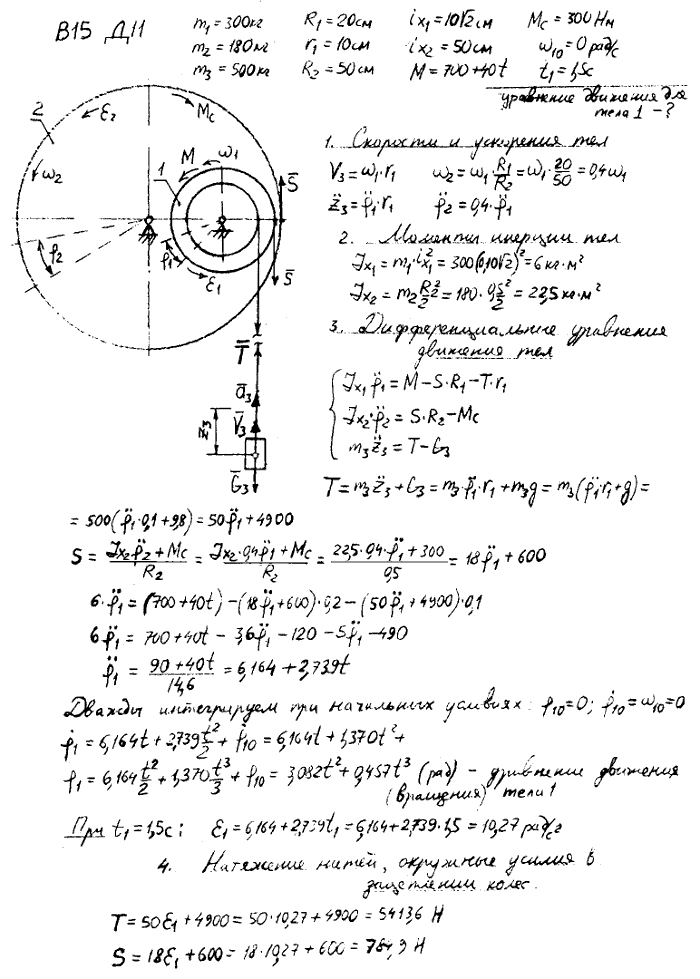 В15 Д11
m₁ = 300кг R₁ = 20см iх₁ = 10√2 см Mc = 300 Нм
m₂ = 180кг r₁ = 10см iх₂ = 50см ω₁₀ = 0 рад/с
m₃ = 500кг R₂ = 50см M = 700+40t t₁ = 1,5с
уравнение движения для
тела 1 - ?
2 ε₂ Mc
ω₂ 1 M ω₁ S̄
φ₂ φ₁ ε₁ S̄
T̄
ā₃
z₃ V̄₃
Ḡ₃
1. Скорости и ускорения тел
V₃ = ω₁·r₁ ω₂ = ω₁·R₁/R₂ = ω₁·20/50 = 0,4ω₁
z̈₃ = φ̈₁·r₁ φ̈₂ = 0,4·φ̈₁
2. Моменты инерции тел
Jх₁ = m₁·iх₁² = 300(0,10√2)² = 6 кг·м²
Jх₂ = m₂R₂²/2 = 180·0,5²/2 = 22,5 кг·м²
3. Дифференциальные уравнения
движения тел
Jх₁φ̈₁ = M - S·R₁ - T·r₁
Jх₂·φ̈₂ = S·R₂ - Mc
m₃z̈₃ = T - G₃
T = m₃z̈₃ + G₃ = m₃·φ̈₁·r₁ + m₃g = m₃(φ̈₁·r₁+g) =
= 500(φ̈₁·0,1+9,8) = 50φ̈₁+4900
S = (Jх₂φ̈₂+Mc)/R₂ = (Jх₂·0,4φ̈₁+Mc)/R₂ = (22,5·0,4·φ̈₁+300)/0,5 = 18φ̈₁+600
6·φ̈₁ = (700+40t) - (18φ̈₁+600)·0,2 - (50φ̈₁+4900)·0,1
6φ̈₁ = 700+40t - 3,6φ̈₁ - 120 - 5φ̈₁ - 490
φ̈₁ = (90+40t)/14,6 = 6,164 + 2,739t
Дважды интегрируем при начальных условиях: φ₁₀=0; φ̇₁₀=ω₁₀=0
φ̇₁ = 6,164t + 2,739t²/2 + φ̇₁₀ = 6,164t + 1,370t² +
φ₁ = 6,164t²/2 + 1,370t³/3 + φ₁₀ = 3,082t² + 0,457t³ (рад) - уравнение движения
(вращения) тела 1
При t₁=1,5с: ε₁ = 6,164+2,739t₁ = 6,164+2,739·1,5 = 10,27 рад/с²
4. Натяжение нитей, окружные усилия в
зацеплении колес.
T = 50ε₁ + 4900 = 50·10,27 + 4900 = 5413,6 Н
S = 18ε₁ + 600 = 18·10,27 + 600 = 784,9 Н